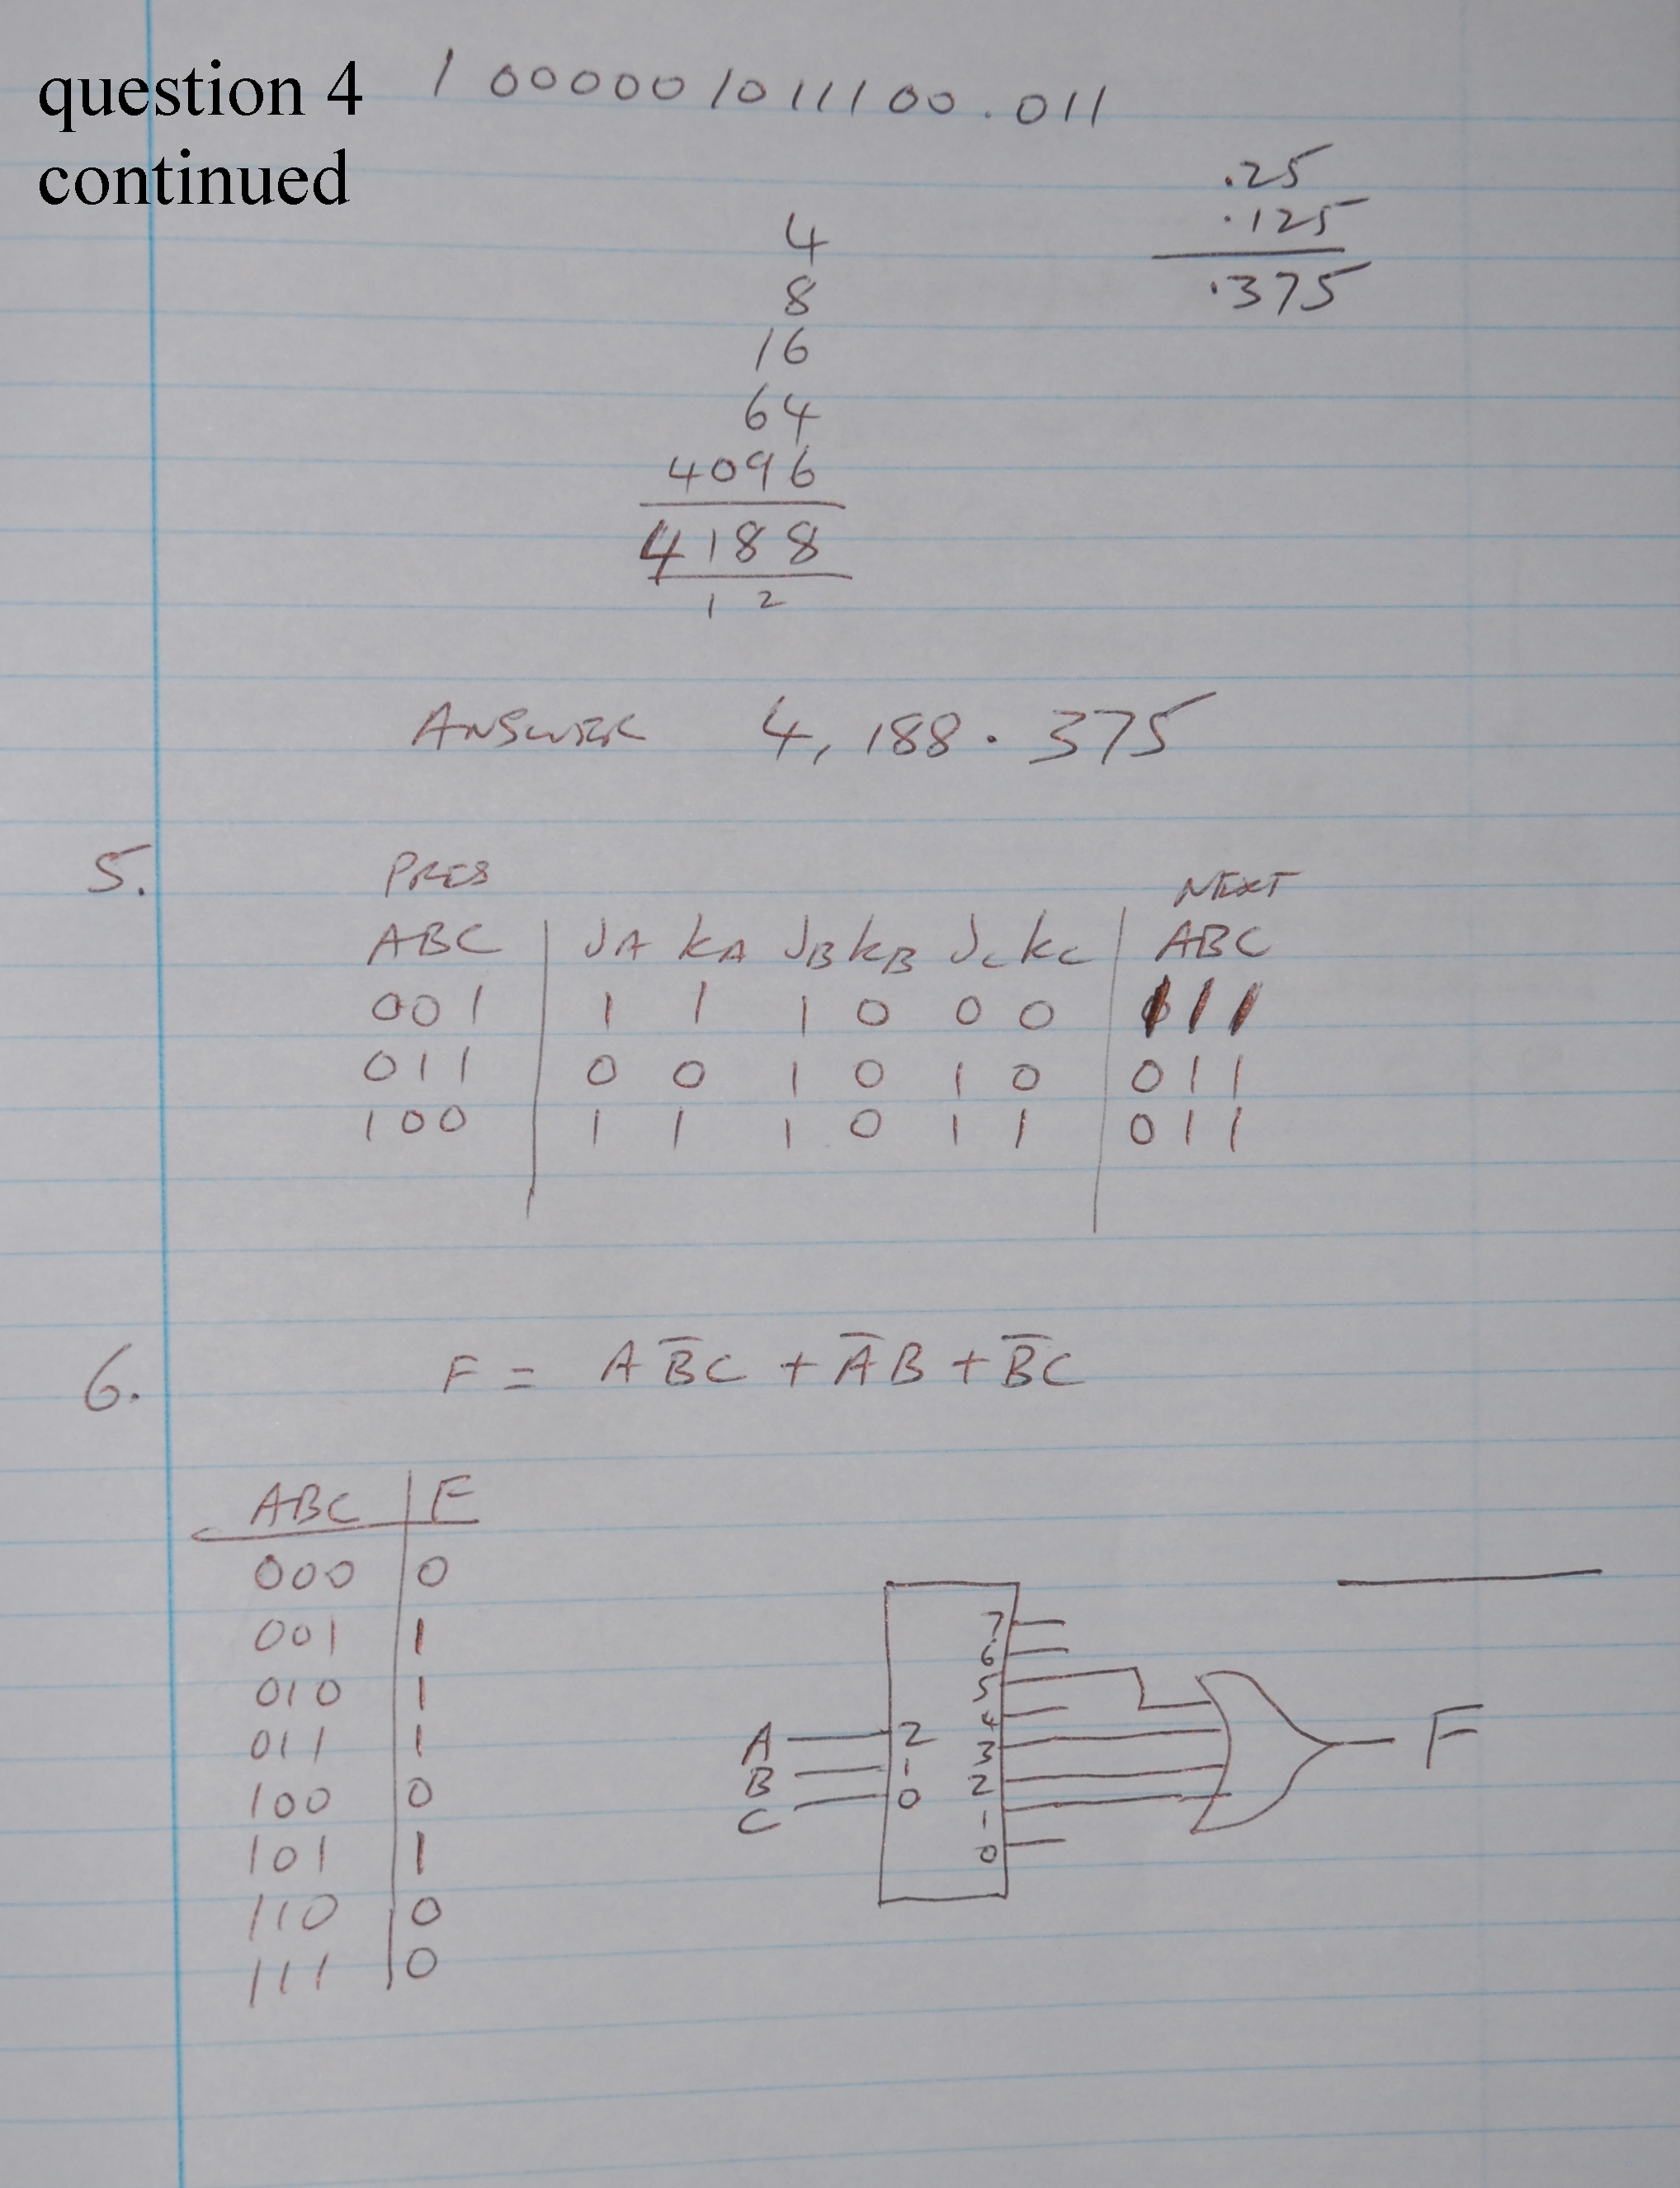 question 4
continued
1 000001011100.011
.25
.125
.375
4
8
16
64
4096
4188
1 2
ANSWER 4,188.375
5.
PRES NEXT
ABC JA KA JB KB JC KC ABC
001 1 1 1 0 0 0 111
011 0 0 1 0 1 0 011
100 1 1 1 0 1 1 011
6. F = AB̅C + A̅B + B̅C
ABC F
000 0
001 1
010 1
011 1
100 0
101 1
110 0
111 0
7
6
5
4
3
2
1
0
A 2
B 1
C 0
F